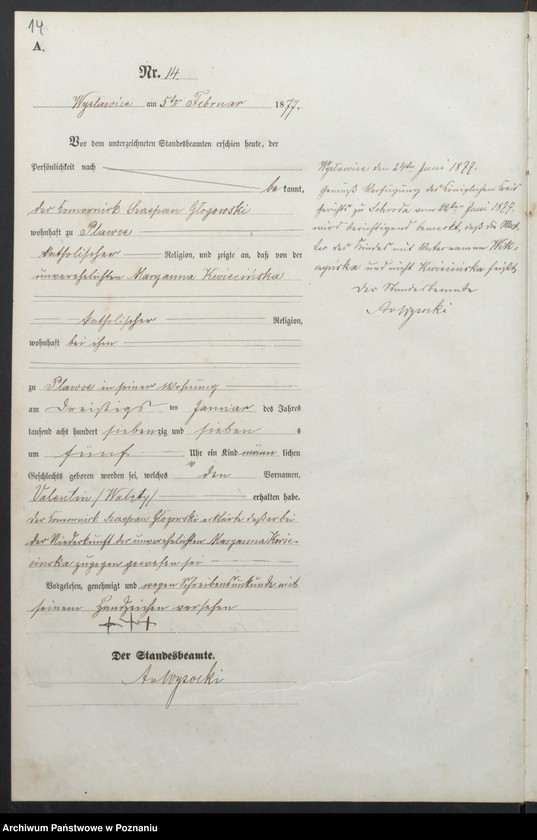 14
A.
Nr. 14.
Wyslawice am 5ten Februar 1877.
Vor dem unterzeichneten Standesbeamten erschien heute, der
Persönlichkeit nach
be kannt,
der Komornik Glogowski
wohnhaft zu Plawce
katholischer Religion, und zeigte an, daß von der
unverehelichten Maryanna Kwiecinska
katholischer Religion,
wohnhaft bei ihm
zu Plawce in seiner Wohnung
am dreißigsten Januar des Jahres
tausend acht hundert siebenzig und sieben
um fünf Uhr ein Kind männ lichen
Geschlechts geboren worden sei, welches den Vornamen,
Valentin /Walety/ erhalten habe.
Der Komornik Glogowski erklärte daß er bei
der Niederkunft der unverehelichten Maryanna Kwie-
cinska zugegen gewesen sei
Vorgelesen, genehmigt und wegen Schreibensunkunde mit
seinem Handzeichen versehen
+++
Der Standesbeamte.
A v Wysocki
Wyslawice den 24ten Juni 1877.
Gemäß Verfügung des Königlichen Kreis
gerichts zu Schroda vom Juni 1877.
wird berichtigend bemerkt, daß die Mut-
ter des Kindes mit Vaternamen
und nicht Kwiecinska heißt
Der Standesbeamte
A v Wysocki
Archiwum Państwowe w Poznaniu